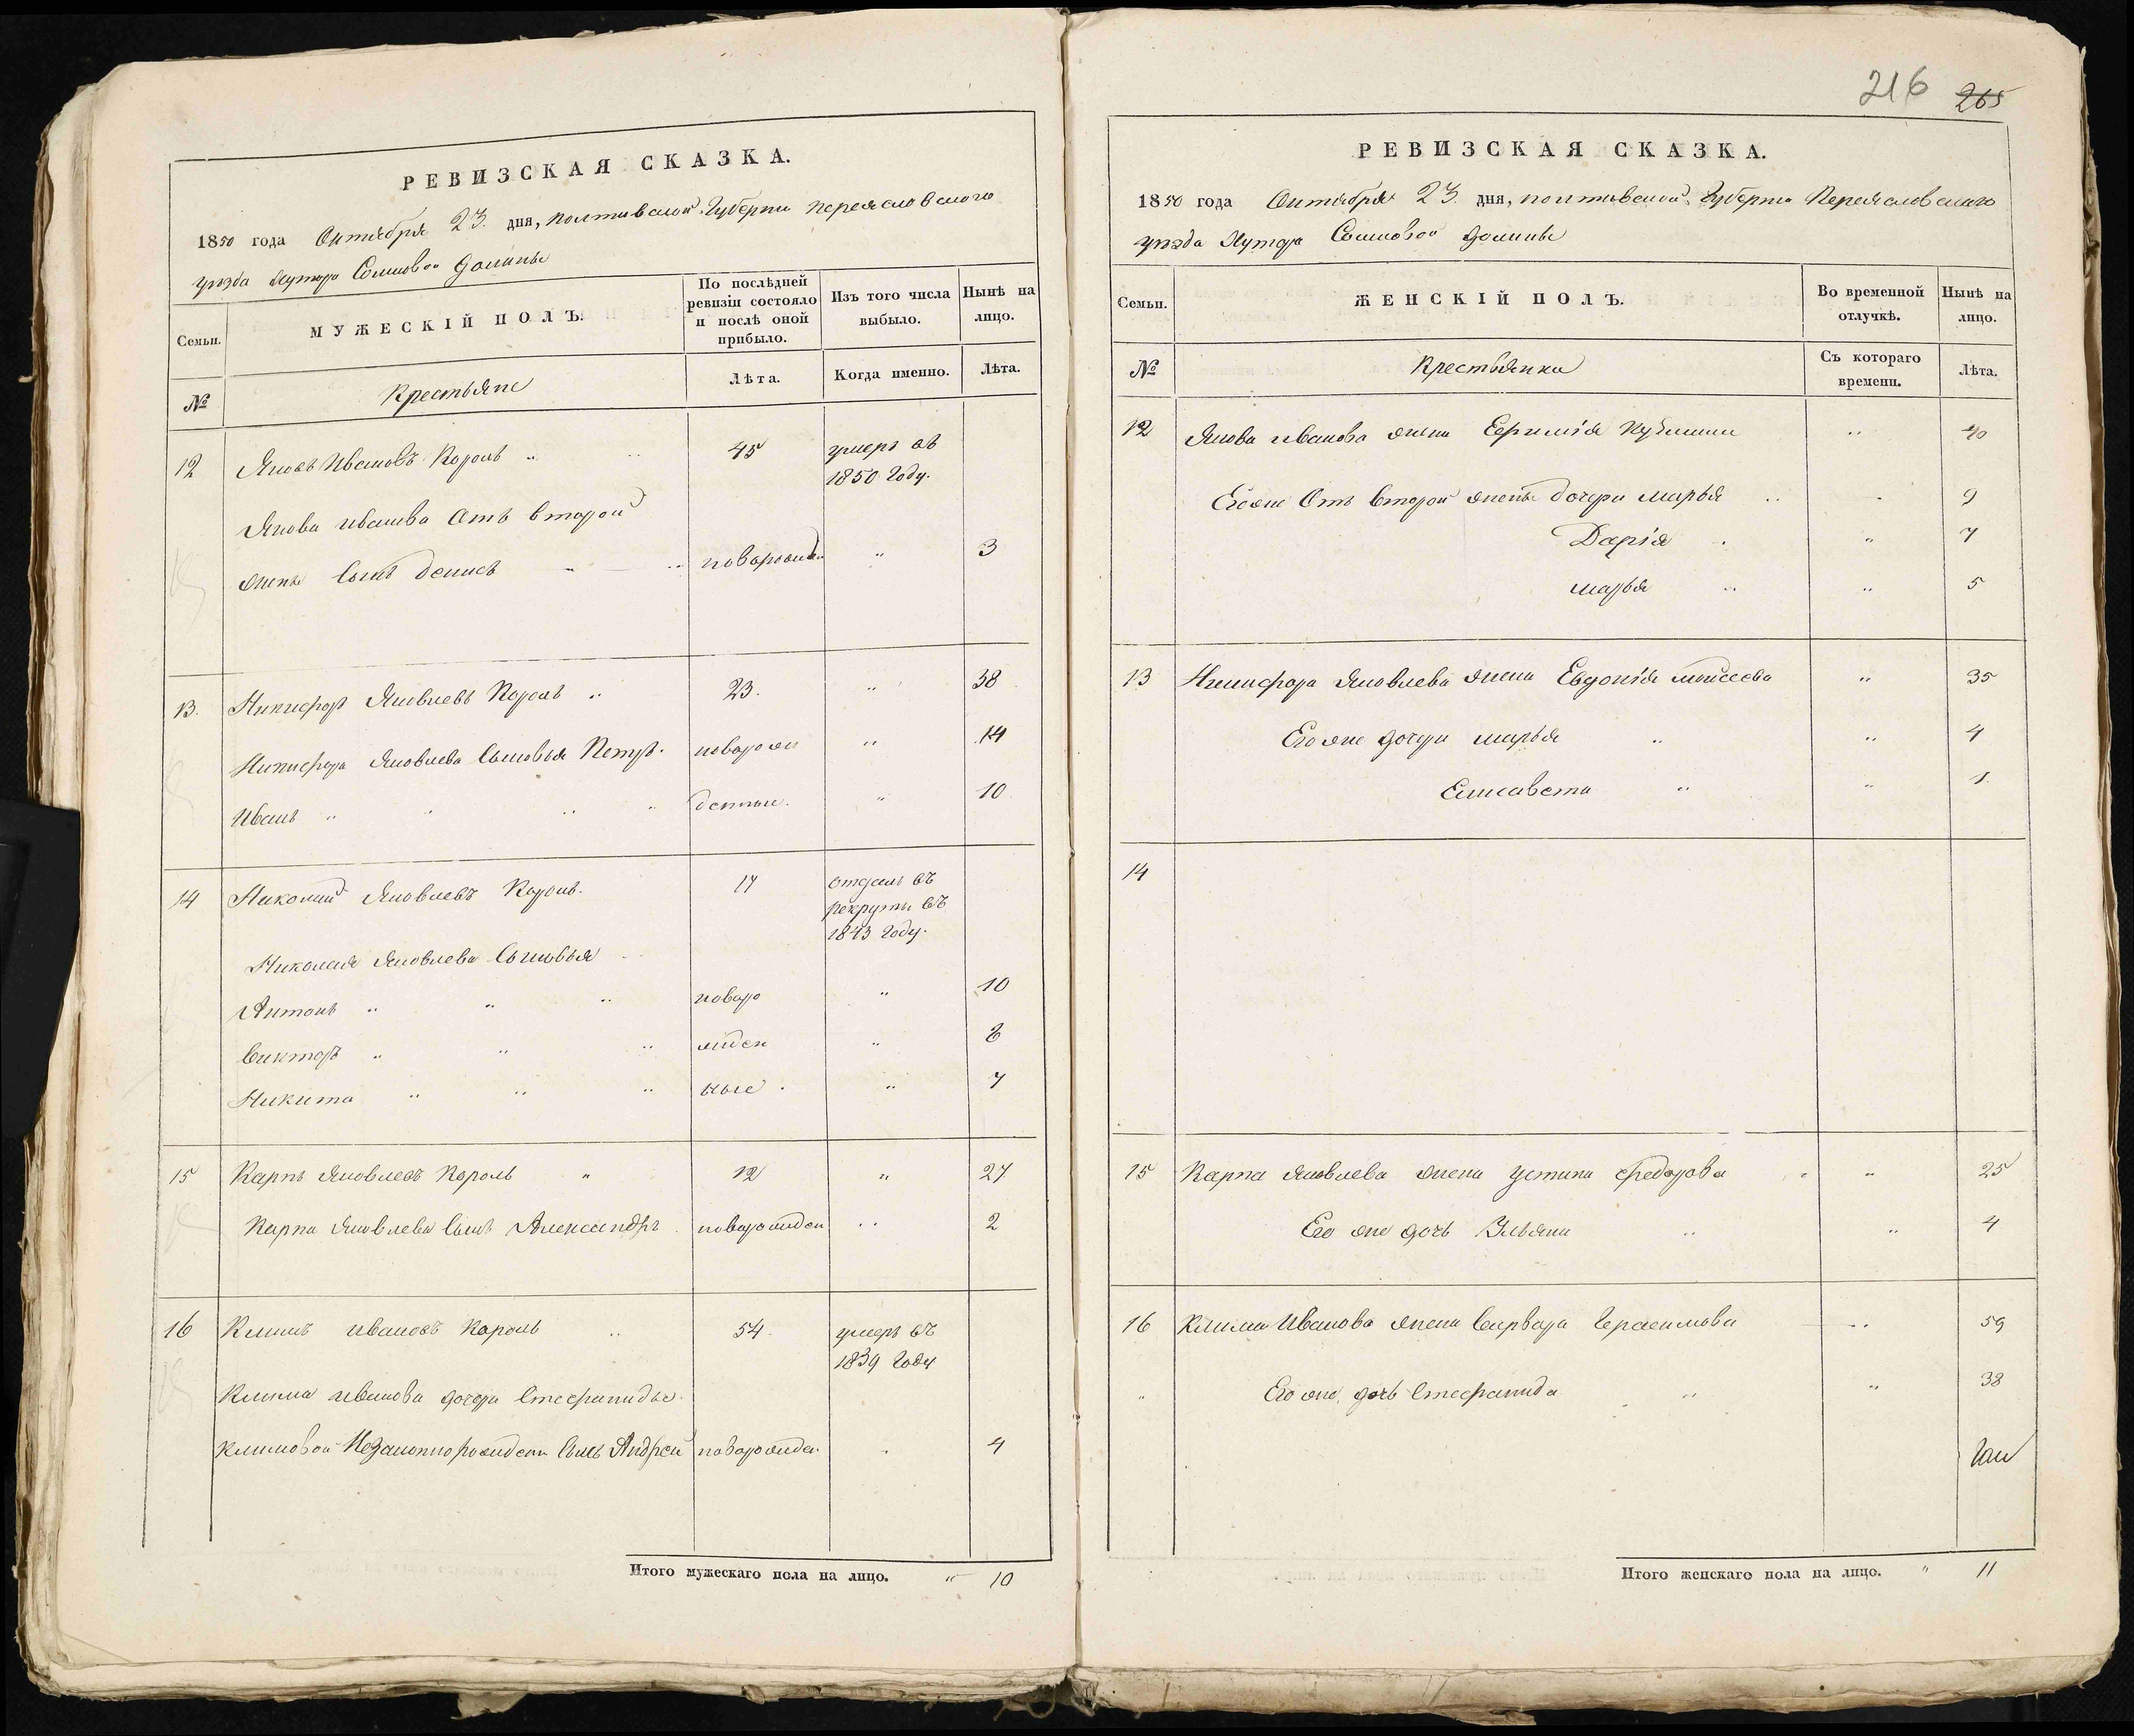 РЕВИЗСКАЯ СКАЗКА.
1850 года Октября 23. дня, Полтавской Губерни Переясловского
уезда Хутора Сомковой Долины
Семьи.
МУЖЕСКІЙ ПОЛЪ.
По послѣдней ревизіи состояло и послѣ оной прибыло.
Изъ того числа выбыло.
Нынѣ на лицо.
№
Крестьяне
Лѣта.
Когда именно.
Лѣта.
12 Яковъ Ивановъ Король 45 умеръ въ
1850 Году.
Якова Иванова Отъ второй
жены Сынъ Денисъ новорожден 3
13. Никифоръ Яковлевъ Король 23. 38
Никифора Яковлева Сыновья Петръ. новорож 14
Иванъ денные. 10
14 Николай Яковлевъ Король. 17 отданъ въ
рекруты въ
1843 Году.
Николая Яковлева Сыновья
Антонъ новоро 10
Викторъ жден 8
Никита ные. 7
15 Карпъ Яковлевъ Король 12 27
Карпа Яковлева Сынъ Александръ новорожден 2
16 Климъ Ивановъ Король 54. умеръ въ
1839 Году
Клима Иванова дочери Стефаниды
Климовой Незаконнорожден Сынъ Андрей новорожде. 4
Итого мужескаго пола на лицо. 10
216 265
РЕВИЗСКАЯ СКАЗКА.
1850 года Октября 23. дня, Полтавской Губерни Переясловского
уезда Хутора Сомковой Долины
Семьи.
ЖЕНСКІЙ ПОЛЪ.
Во временной отлучкѣ.
Нынѣ на лицо.
№
Крестьянки
Съ котораго времени.
Лѣта.
12 Якова Иванова жена Ефимія 40
Егоже Отъ второй жены дочери Марья 9
Дарія 7
Марья 5
13 Никифора Яковлева жена Евдокія Моисеева 35
Его же дочери Марья 4
Елисавета 1.
14
15 Карпа Яковлева жена Устина Федорова 25
Его же дочь Ульяна 4
16 Клима Иванова жена Варвара Герасимова 59
Его же дочь Стефанида 38
Итого женскаго пола на лицо. 11